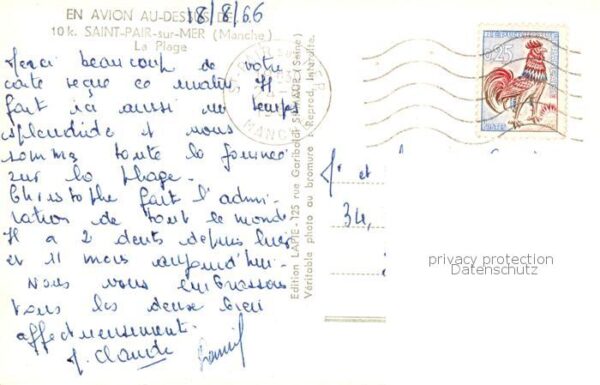 EN AVION AU-DESSUS DE...
18/8/66
10 k. SAINT-PAIR-sur-MER (Manche)
La Plage
Merci beaucoup de votre
carte reçue ce matin. Il
fait ici aussi un temps
splendide et nous
somme toute la journee
sur la plage.
Christophe fait l'admi-
ration de tout le monde
Il a 2 dents depuis hier
et 11 mois aujourd'hui.
Nous vous embrassons
tous les deux bien
affectueusement.
J. Claude
Edition LAPIE - 125 rue Garibaldi St-MAUR (Seine)
Véritable photo au bromure - Reprod. Interdite.
MANCHE
0,25
et
34,
privacy protection
Datenschutz